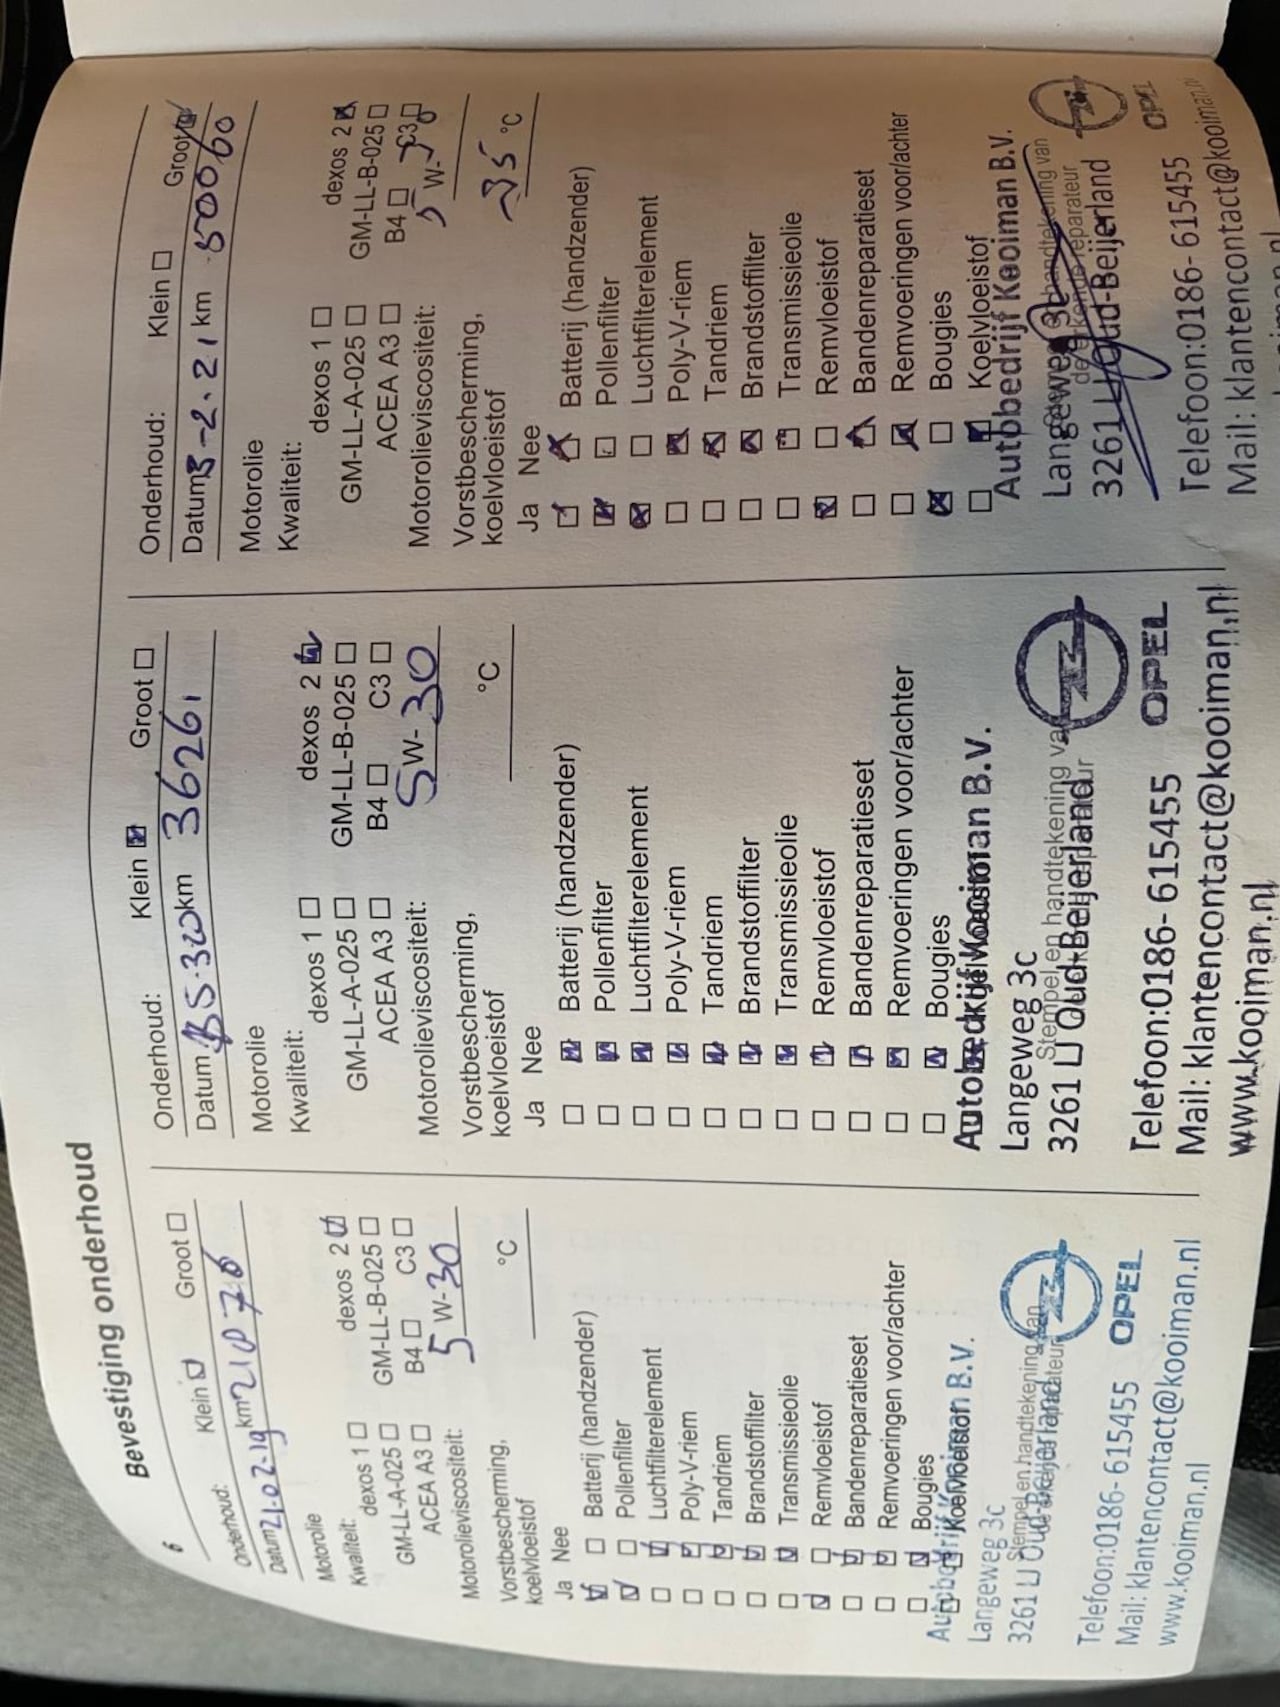 6
Bevestiging onderhoud
Onderhoud: Klein Groot
Datum 21-02-19 km 21076
Motorolie
Kwaliteit:
dexos 1 dexos 2
GM-LL-A-025 GM-LL-B-025
ACEA A3 B4 C3
Motorolieviscositeit: 5 W-30
Vorstbescherming,
koelvloeistof °C
Ja Nee
Batterij (handzender)
Pollenfilter
Luchtfilterelement
Poly-V-riem
Tandriem
Brandstoffilter
Transmissieolie
Remvloeistof
Bandenreparatieset
Remvoeringen voor/achter
Bougies
Koelvloeistof
Autobedrijf Kooiman B.V.
Langeweg 3c
Stempel en handtekening van
3261 LJ Oud-Beijerland
OPEL
Telefoon:0186-615455
Mail: klantencontact@kooiman.nl
www.kooiman.nl
Onderhoud: Klein Groot
Datum km 36261
Motorolie
Kwaliteit:
dexos 1 dexos 2
GM-LL-A-025 GM-LL-B-025
ACEA A3 B4 C3
Motorolieviscositeit: 5W-30
Vorstbescherming,
koelvloeistof °C
Ja Nee
Batterij (handzender)
Pollenfilter
Luchtfilterelement
Poly-V-riem
Tandriem
Brandstoffilter
Transmissieolie
Remvloeistof
Bandenreparatieset
Remvoeringen voor/achter
Bougies
Autobedrijf Kooiman B.V.
Langeweg 3c
Stempel en handtekening van
3261 LJ Oud-Beijerland
OPEL
Telefoon:0186-615455
Mail: klantencontact@kooiman.nl
www.kooiman.nl
Onderhoud: Klein Groot
Datum km 50060
Motorolie
Kwaliteit:
dexos 1 dexos 2
GM-LL-A-025 GM-LL-B-025
ACEA A3 B4 C3
Motorolieviscositeit: W-
Vorstbescherming,
koelvloeistof °C
Ja Nee
Batterij (handzender)
Pollenfilter
Luchtfilterelement
Poly-V-riem
Tandriem
Brandstoffilter
Transmissieolie
Remvloeistof
Bandenreparatieset
Remvoeringen voor/achter
Bougies
Koelvloeistof
Autobedrijf Kooiman B.V.
Langeweg 3c
handtekening van
de erkende reparateur
3261 LJ Oud-Beijerland
OPEL
Telefoon:0186-615455
Mail: klantencontact@kooiman.nl